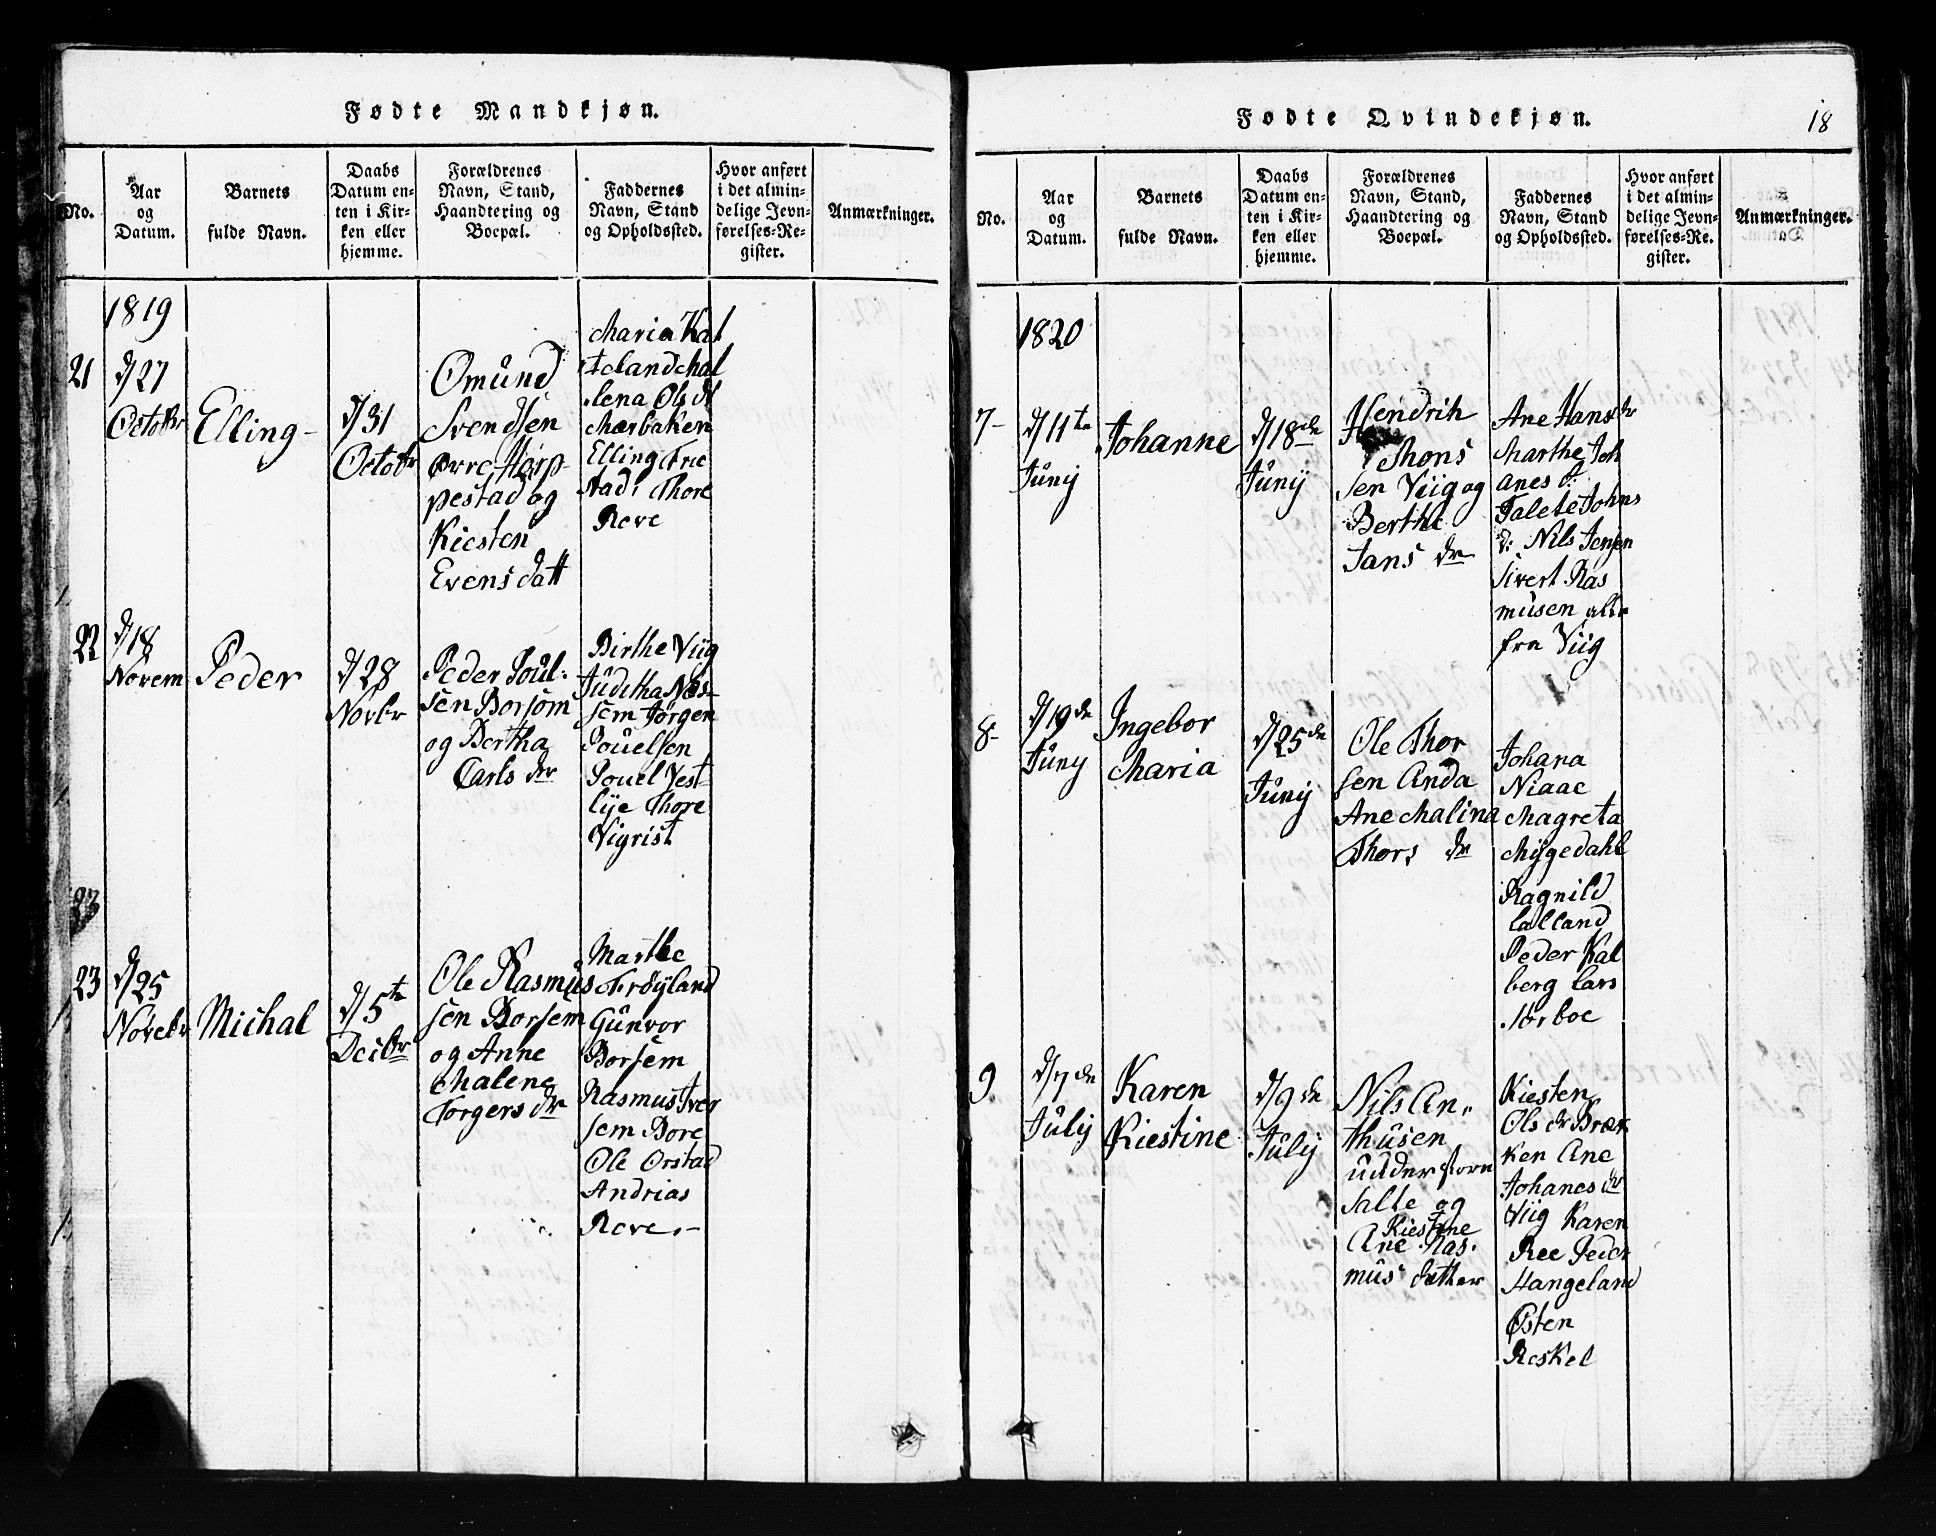 Fødte Mandkjøn.
No.
Aar
og
Datum.
Barnets
fulde Navn.
Daabs
Datum en-
ten i Kir-
ken eller
hjemme.
Forældrenes
Navn, Stand,
Haandtering og
Boepæl.
Faddernes
Navn, Stand
og Opholdssted.
Hvor anført
i det almin-
delige Jevn-
førelses-Re-
gister.
Anmærkninger.
1819
21
d/27
Octobr
Elling-
d/31
Octobr
Omund
Svendsen
Øvre Hørp-
pestad og
Kiesten
Evens datt
Maria Kal
teland Mal
lena Ols dt
Mærbaken
Elling Fric
stad: Thore
Reve
22
d/18
Novem
Peder
d/28
Novbr
Peder Poul:
sen Borsom
og Bertha
Carls dr
Birthe Viig
Juditha Nes-
sem Jørgen
Pouelsen
Pouel Vest-
lye Thore
Vigrist
23
23
d/25
Novebr
Michal
d/5te
Decbr
Ole Rasmus
sen Borsem
og Anne
Malene
Torgers dr
Marthe
Frøyland
Gunvor
Borsem
Rasmus Iver
sem Bore
Ole Orstad
Andrias
Reve.-
Fødte Qvindekjøn.
18
No.
Aar
og
Datum.
Barnets
fulde Navn.
Daabs
Datum en-
ten i Kir-
ken eller
hjemme.
Forældrenes
Navn, Stand,
Haandtering og
Boepæl.
Faddernes
Navn, Stand
og Opholdssted.
Hvor anført
i det almin-
delige Jevn-
førelses-Re.
gister.
Anmærkninger.
1820
7-
d/11te
Juny
Johanne
d/18de
Juny
Hendrik
Thons
sen Viig og
Berthe
Jans dr
Ane Hans dr
Marthe Joh
anes d:
Talete Johns
d: Nils Jensen
Sivert Ras
musen alle
fra Viig
8-
d/19de
Juny
Ingebor
Maria
d/25de
Juny
Ole Thor
sen Anda
Ane Malina
Thors dr
Johana
Niaae
Magreta
Mygedahl
Ragnild
Lalland
Peder Kal
berg Lars
Norboe
9.
d/7de
July
Karen
Kiestine
d/9de
July
Nils An-
thusen
uudder storre
Salte og
Kiestine
Ane Ras.
mus datter
Kiesten
Ols dr Bræk
ken Ane
Johanes dr
Viig Karen
Ree Peder
Hangeland
Østen
Reskel